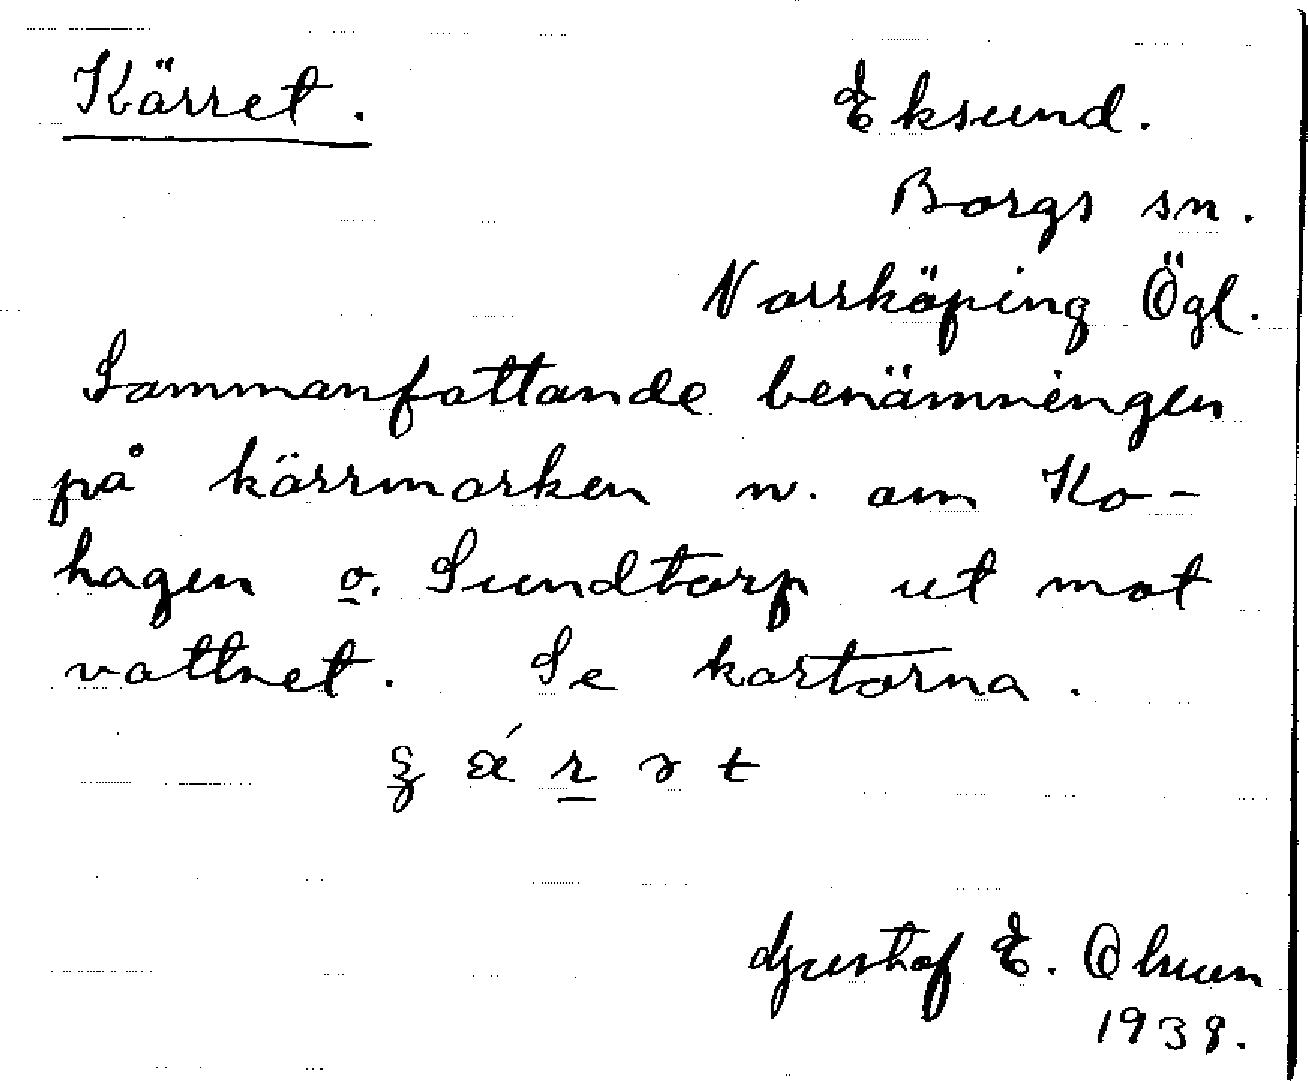 Kärret.
Eksund.
Borgs sn.
Norrköping Ögl.
Sammanfattande benämningen
på kärrmarken n. om Ko-
hagen o. Sundtorp ut mot
vattnet. Se kartorna.
Gustaf E. Olsson
1938.